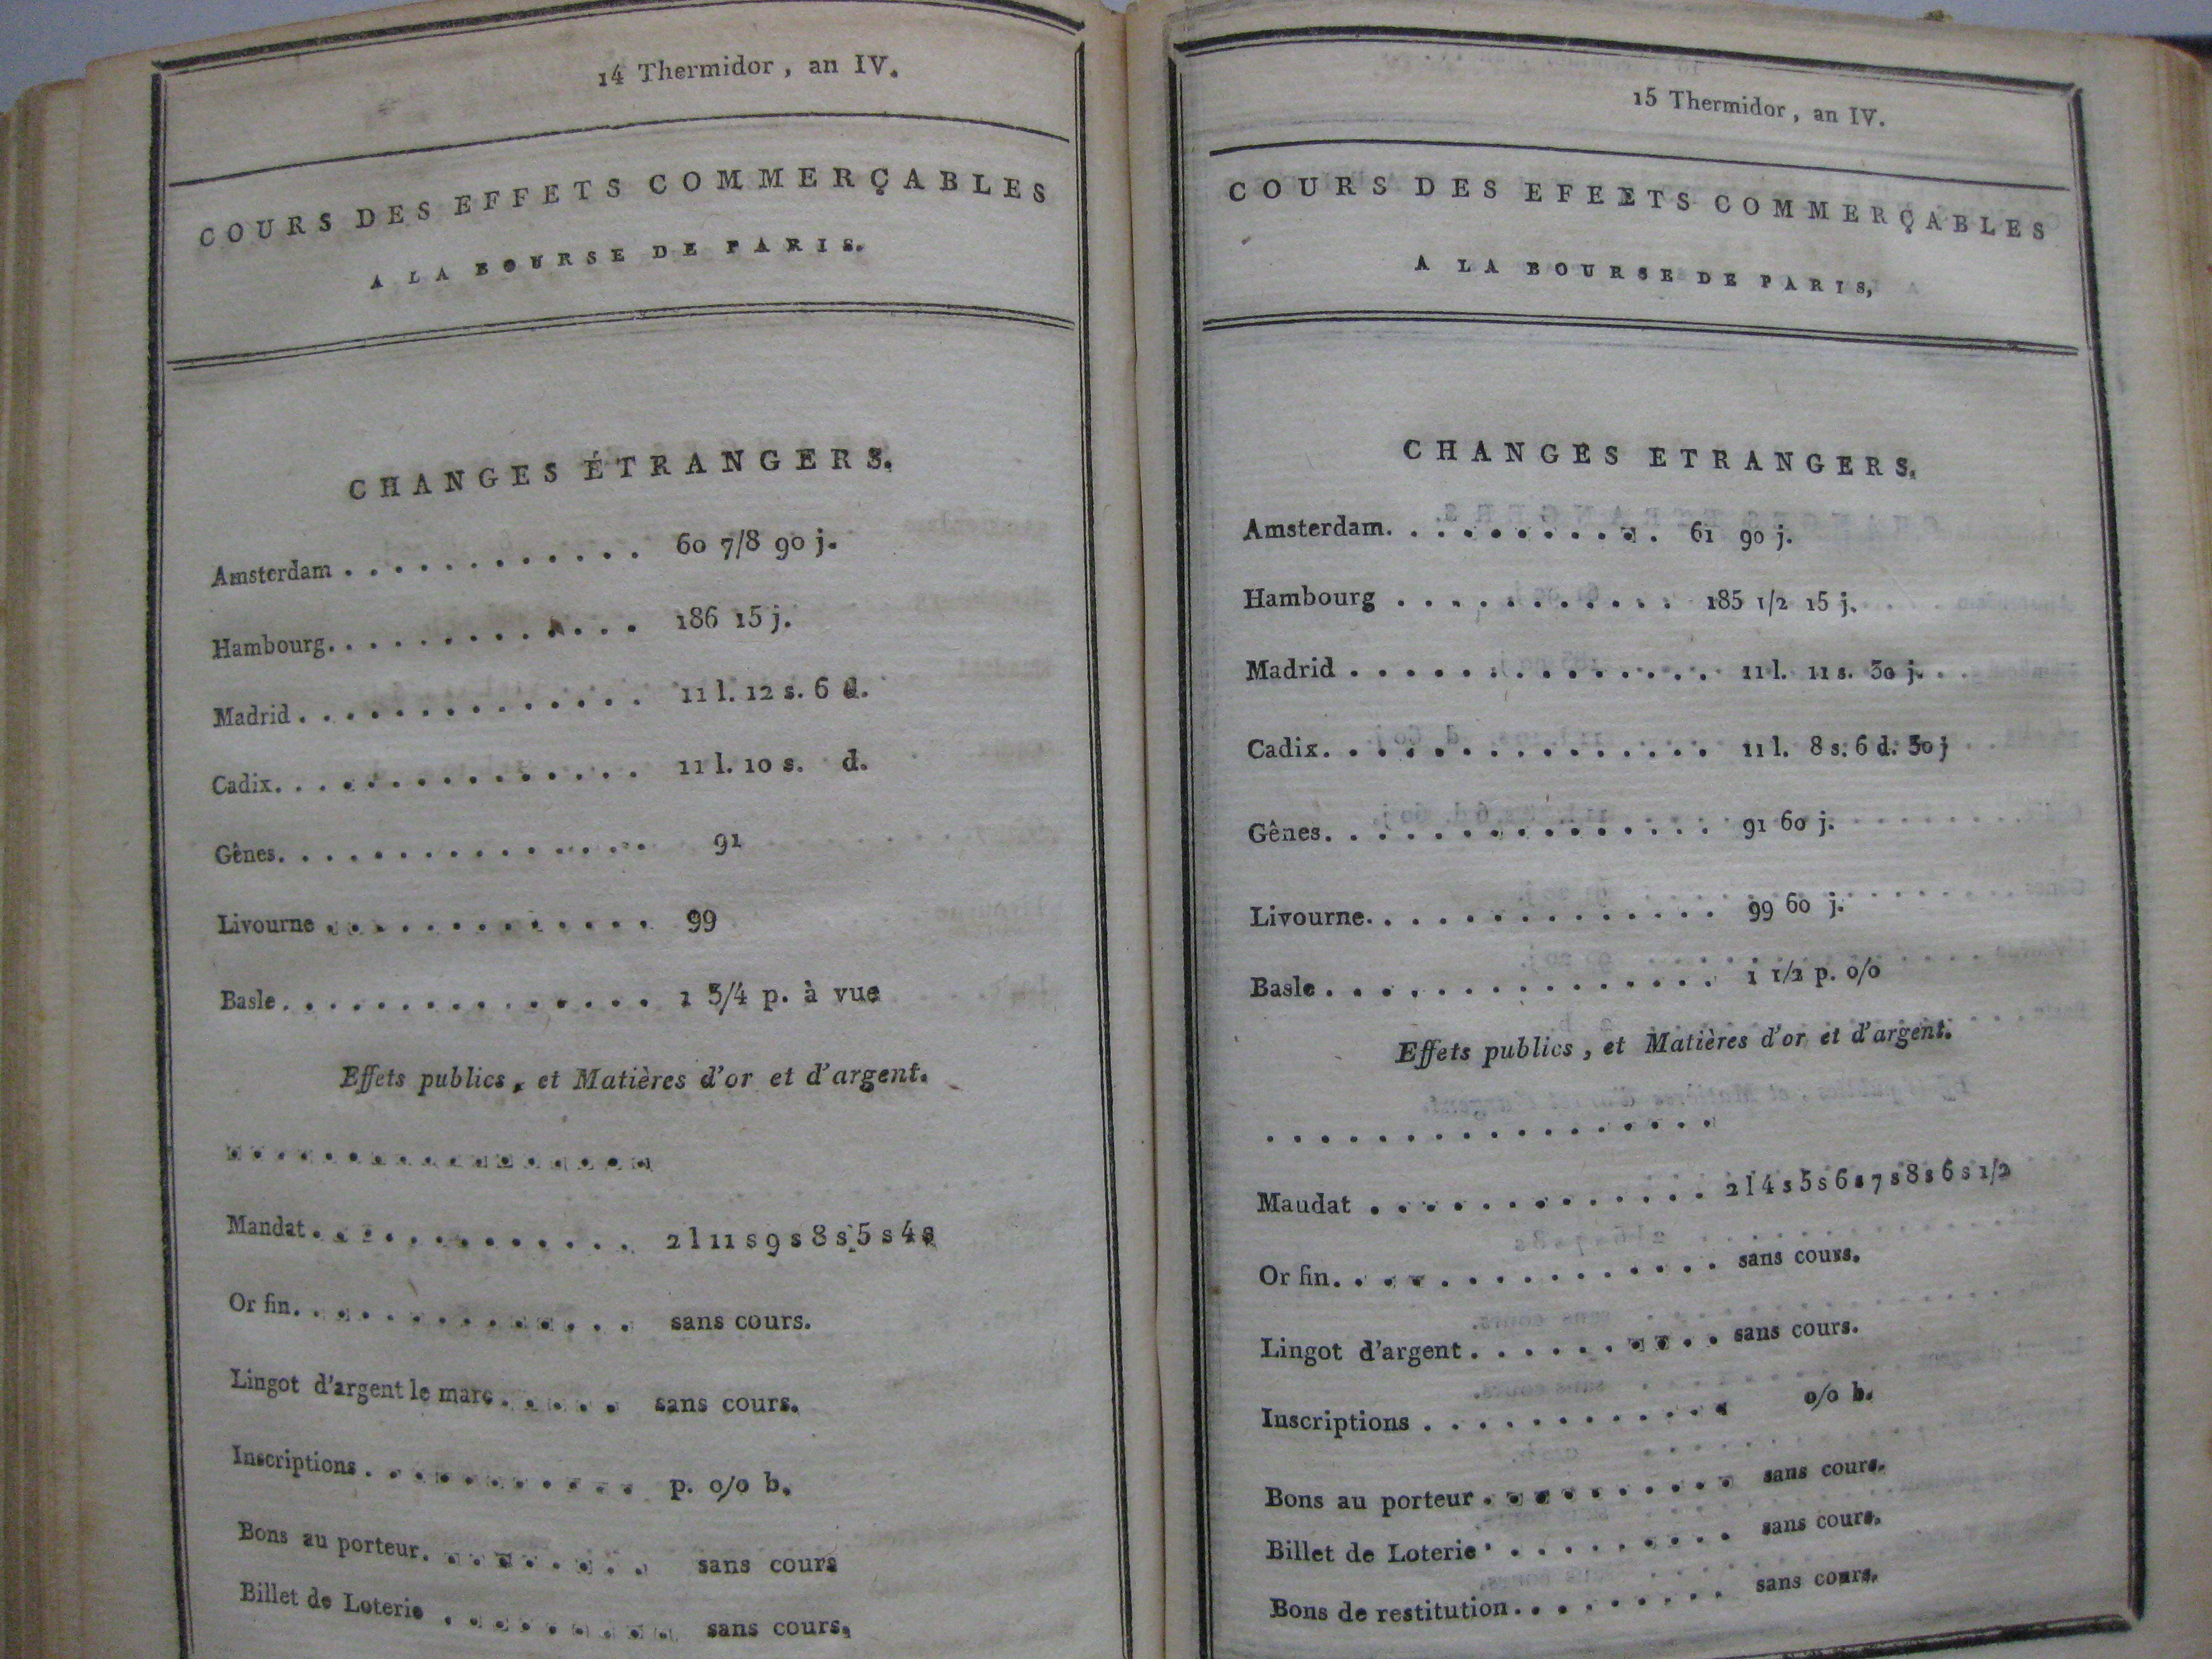 14 Thermidor, an IV.
COURS DES EFFETS COMMERÇABLES
A LA BOURSE DE PARIS.
CHANGES ÉTRANGERS.
Amsterdam . . . . . . . . . . . . 60 7/8 90 j.
Hambourg. . . . . . . . . . . . . 186 15 j.
Madrid . . . . . . . . . . . . . . 11 l. 12 s. 6 d.
Cadix. . . . . . . . . . . . . . . 11 l. 10 s. d.
Gênes. . . . . . . . . . . . . . . 91
Livourne . . . . . . . . . . . . . 99
Basle . . . . . . . . . . . . . . . 1 3/4 p. à vue
Effets publics, et Matières d'or et d'argent.
. . . . . . . . . . . . . . . . . .
Mandat . . . . . . . . . . . . . 2 l 11 s 9 s 8 s 5 s 4 s
Or fin. . . . . . . . . . . . . . . sans cours.
Lingot d'argent le marc . . . . . sans cours.
Inscriptions . . . . . . . . . . . p. o/o b.
Bons au porteur. . . . . . . . . sans cours
Billet de Loterie . . . . . . . . . sans cours.
15 Thermidor, an IV.
COURS DES EFEETS COMMERÇABLES
A LA BOURSE DE PARIS,
CHANGES ETRANGERS.
Amsterdam. . . . . . . . . . . 61 90 j.
Hambourg . . . . . . . . . . . 185 1/2 15 j.
Madrid . . . . . . . . . . . . . . 11 l. 11 s. 30 j.
Cadix. . . . . . . . . . . . . . . 11 l. 8 s. 6 d. 30 j
Gênes. . . . . . . . . . . . . . . 91 60 j.
Livourne. . . . . . . . . . . . . . 99 60 j.
Basle . . . . . . . . . . . . . . . 1 1/2 p. o/o
Effets publics, et Matières d'or et d'argent.
. . . . . . . . . . . . . . . . .
Maudat . . . . . . . . . . . . . 2 l 4 s 5 s 6 s 7 s 8 s 6 s 1/2
Or fin. . . . . . . . . . . . . . . sans cours.
Lingot d'argent . . . . . . . . . . sans cours.
Inscriptions . . . . . . . . . . . . o/o b.
Bons au porteur . . . . . . . . . . sans cours.
Billet de Loterie . . . . . . . . . . sans cours.
Bons de restitution. . . . . . . . . sans cours.